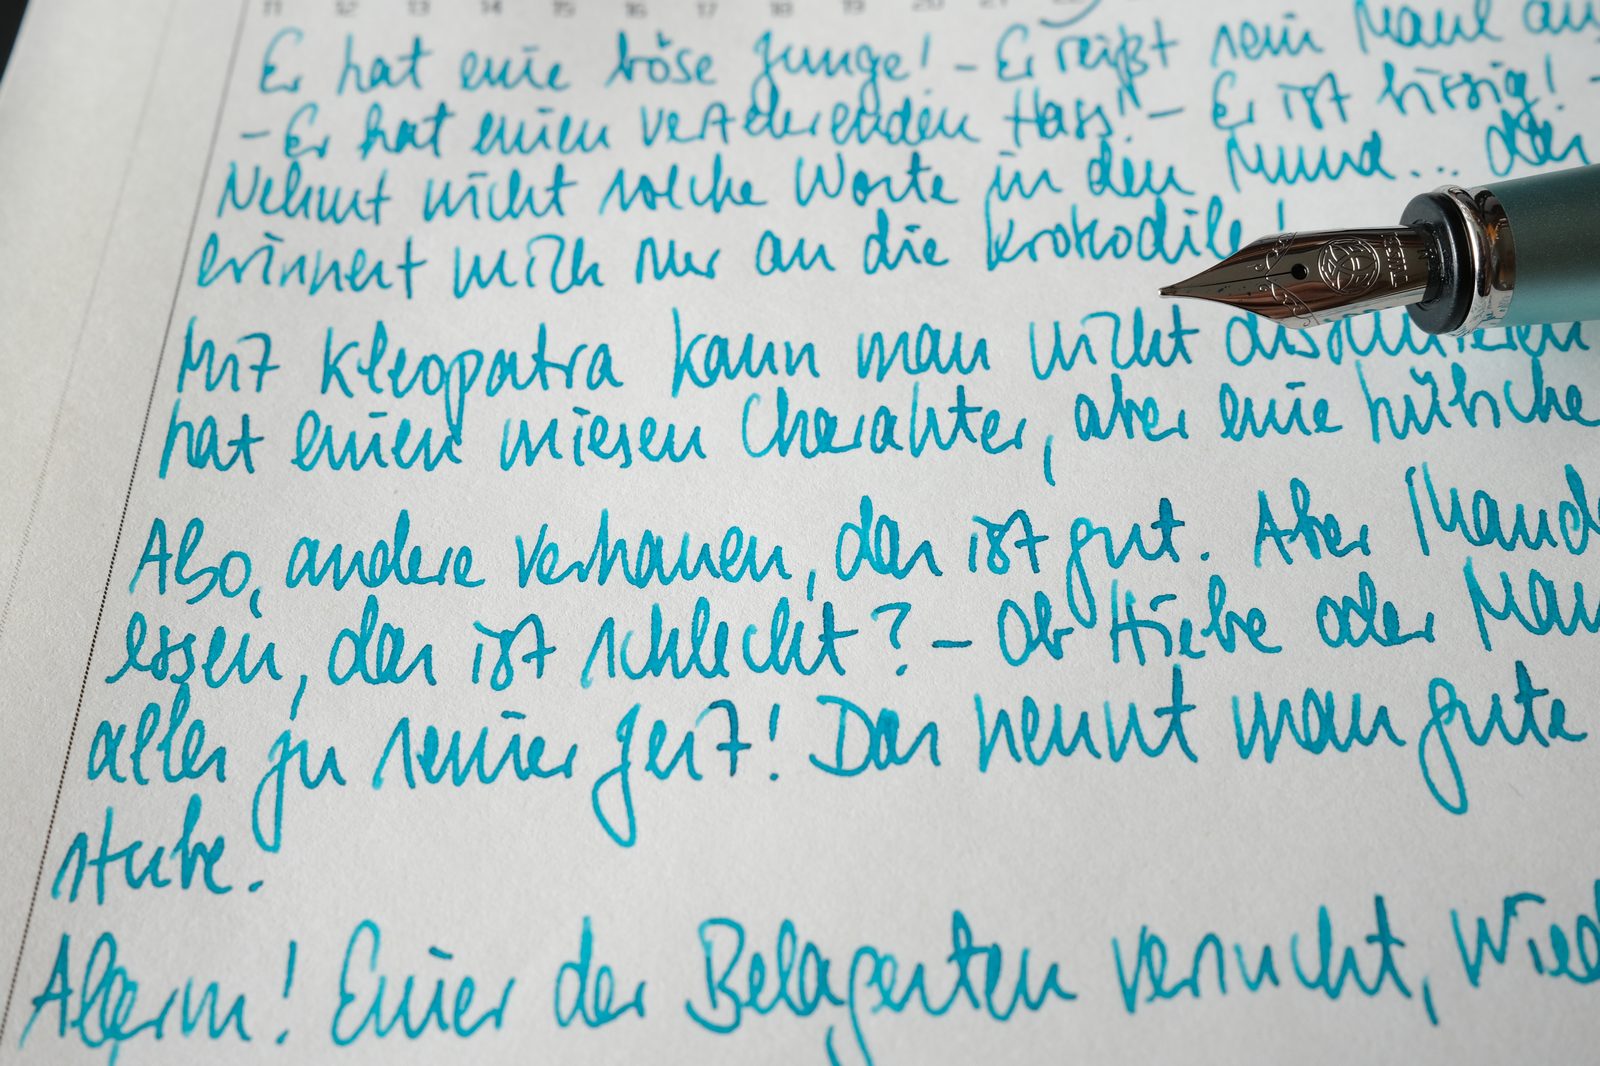 11 12 13 14 15 16 17 18 19 20 21 22
Er hat eine böse Zunge! – Er reißt sein Maul au
– Er hat einen verzehrenden Hass! – Er ist bissig! –
Nehmt nicht solche Worte in den Mund... das
erinnert mich nur an die Krokodile!
Mit Kleopatra kann man nicht diskutieren
hat einen miesen Charakter, aber eine hübsche
Also, andere verhauen, das ist gut. Aber Mand
essen, das ist schlecht? – Ob Hiebe oder Man
alles zu seiner Zeit! Das nennt man gute
stube.
Alarm! Einer der Belagerten versucht, wied